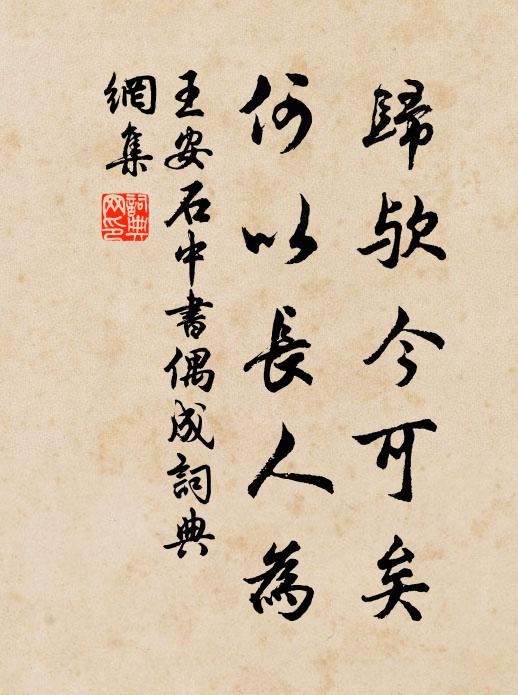 歸欤今可矣
何以長人為
王安石中書偶成詞典
網集
詞典
网印